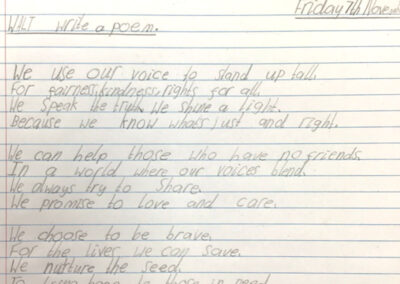 Friday 7th Nove
WALT write a poem.
We use our voice to stand up tall,
For fairness, kindness, rights for all.
We speak the truth. We shine a light.
Because we know whats just and right.
We can help those who have no friends.
In a world where our voices blend.
We always try to share.
We promise to love and care.
We choose to be brave.
For the lives we can save.
We nutture the seed.
To bring hope to those in need.